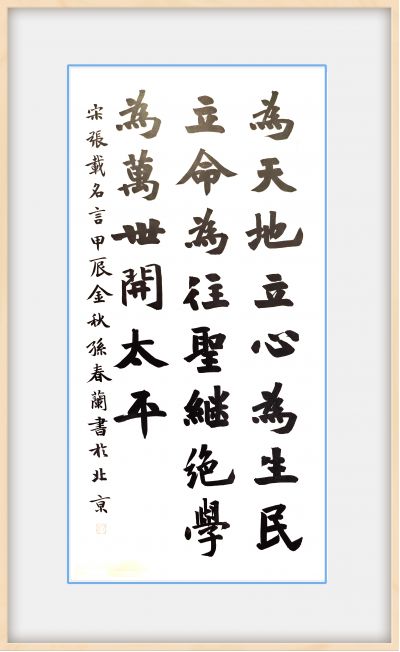 為天地立心為生民
立命為往聖継绝學
為萬世開太平
宋張載名言甲辰金秋孫春蘭書於北京